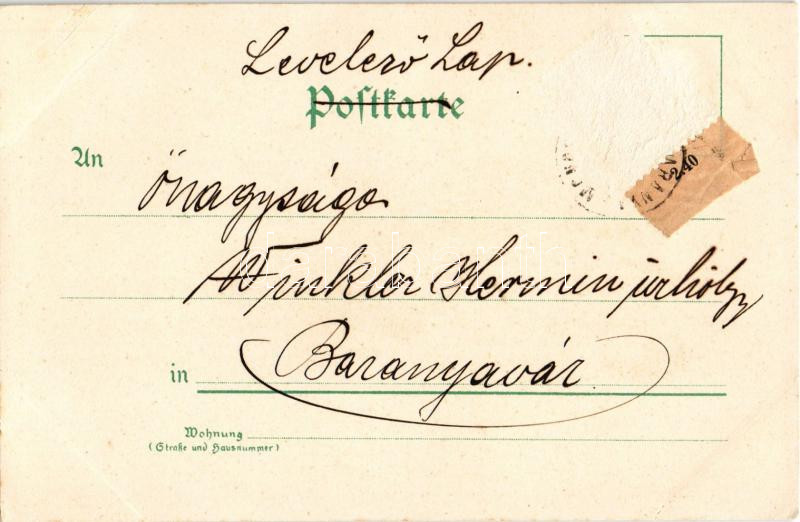 Levelező Lap.
Postkarte
An
Őnagysága
Winkler Hermin úrhölgy
in Baranyavár
Wohnung
(Straße und Hausnummer)
2.40